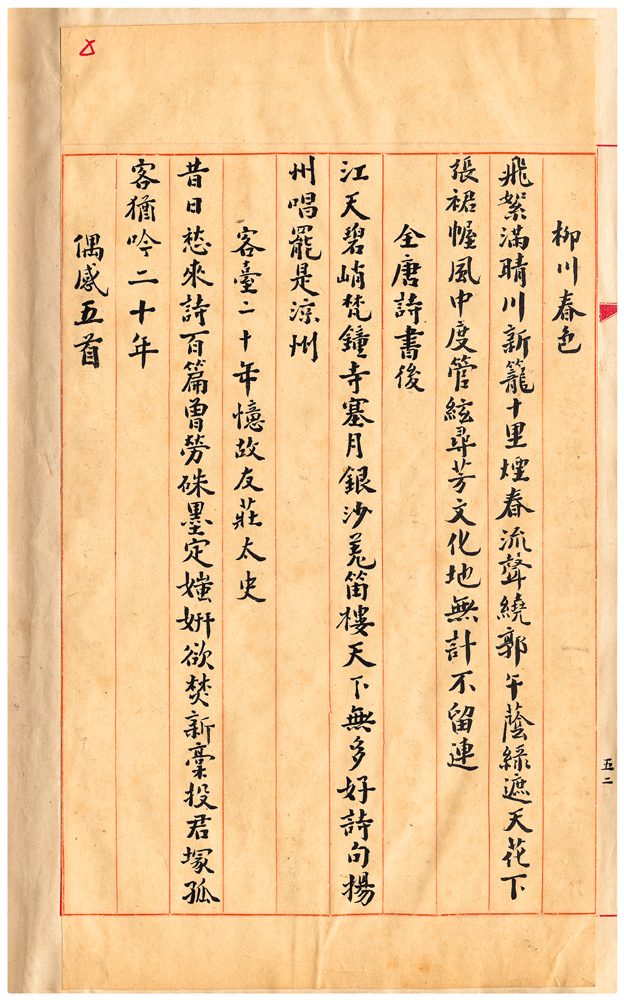 柳川春色
飛絮滿晴川新籠十里煙春流聲繞郭午蔭綠遮天花下
張裙幄風中度管絃尋芳文化地無計不留連
全唐詩書後
江天碧峭梵鐘寺塞月銀沙羗笛樓天下無多好詩句揚
州唱罷是涼州
客臺二十年憶故友莊太史
昔日愁來詩百篇曾勞硃墨定媸妍欲焚新稾投君塚孤
客猶吟二十年
偶感五首
五二